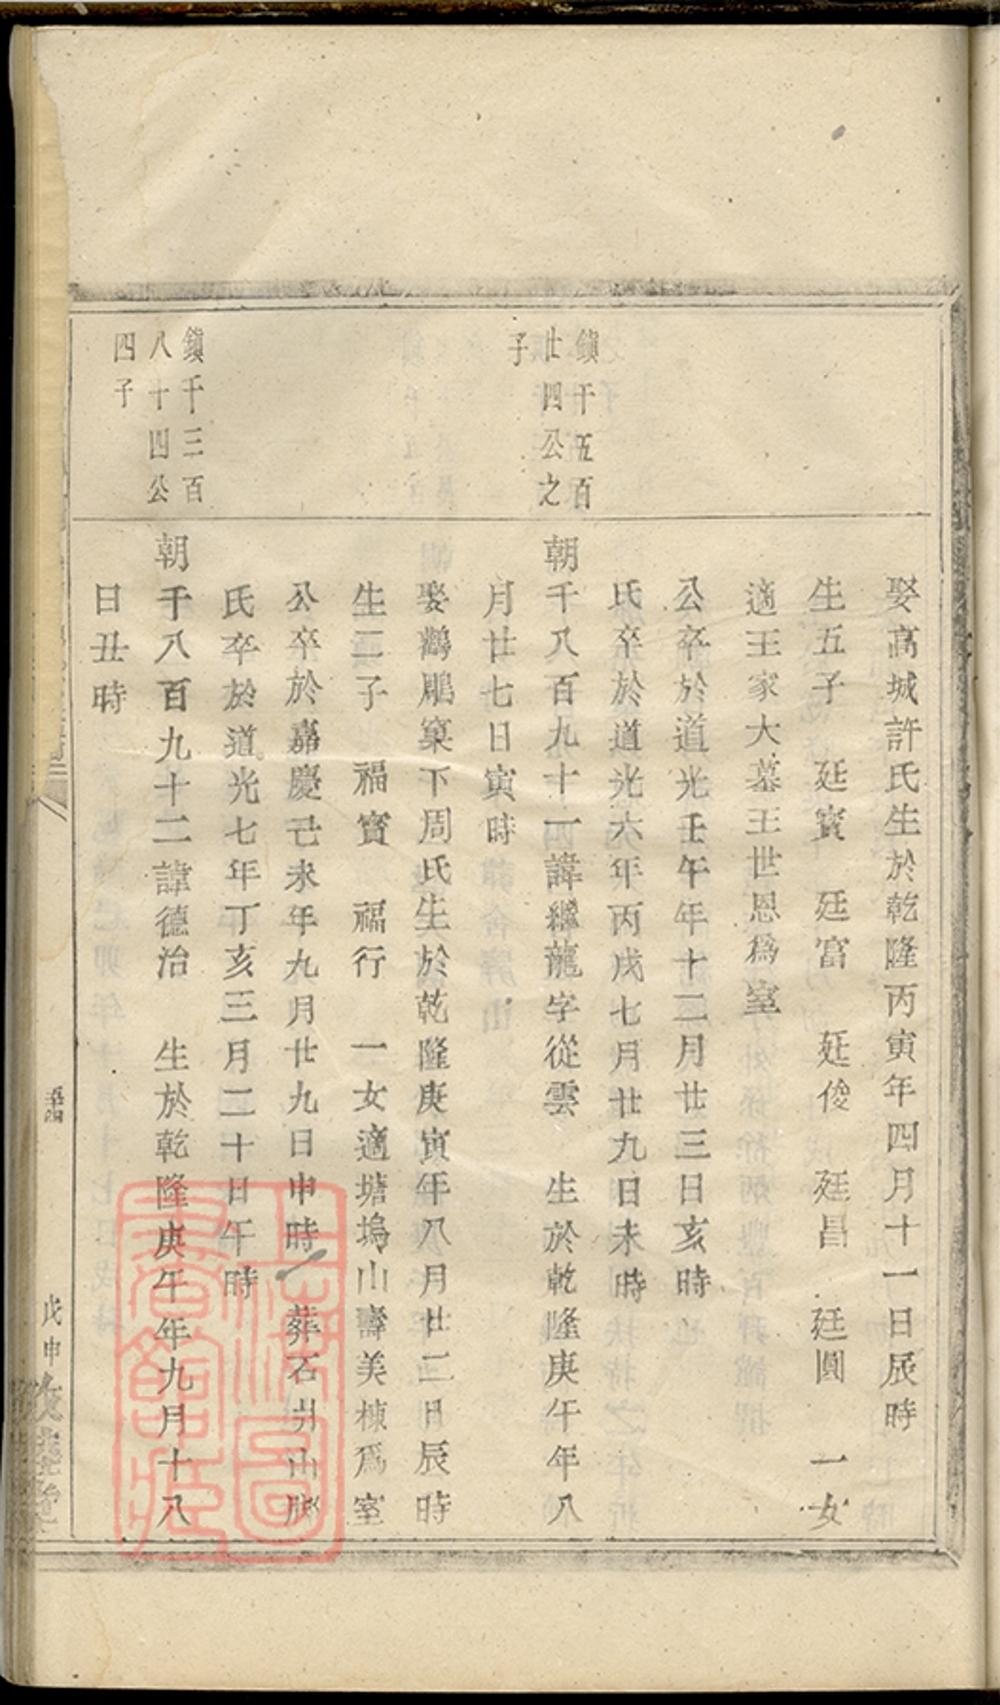 娶高城許氏生於乾隆丙寅年四月十一日辰時
生五子 廷賓 廷富 廷俊 廷昌 廷圓 一女
適王家大墓王世恩爲室
公卒於道光壬午年十二月廿三日亥時
氏卒於道光六年丙戌七月廿九日未時
鎮千五百
廿四公之
子
朝千八百九十一諱繼龍字從雲 生於乾隆庚午年八
月廿七日寅時
娶鸛鵰窠下周氏生於乾隆庚寅年八月廿二日辰時
生二子 福寶 福行 一女適塘塢山壽美棟爲室
公卒於嘉慶己未年九月廿九日申時 葬石井山脚
氏卒於道光七年丁亥三月二十日午時
鎮千三百
八十四公
四子
朝千八百九十二諱德治 生於乾隆庚午年九月十八
日丑時
戊申
上海圖書館藏